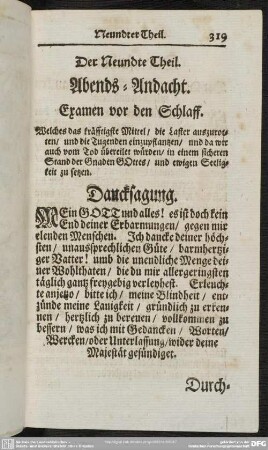 Neundter Theil. 319
Der Neundte Theil.
Abends-Andacht.
Examen vor den Schlaff.
Welches das kräfftigste Mittel / die Laster auszurot-
ten / und die Tugenden einzupflantzen / und da wir
auch vom Tod übereilet würden / in einem sicheren
Stand der Gnaden GOttes / und ewigen Seelig-
keit zu setzen.
Dancksagung.
MEin GOTT und alles! es ist doch kein
End deiner Erbarmungen / gegen mir
elenden Menschen. Ich dancke deiner höch-
sten / unaussprechlichen Güte / barmhertzi-
ger Vatter! umb die unendliche Menge dei-
ner Wohlthaten / die du mir allergeringsten
täglich gantz freygebig verleyhest. Erleuch-
te anjetzo / bitte ich / meine Blindheit / ent-
zünde meine Lauigkeit / gründlich zu erken-
nen / hertzlich zu bereuen / vollkommen zu
bessern / was ich mit Gedancken / Worten /
Wercken / oder Unterlassung / wider deine
Majestät gesündiget.
Durch-